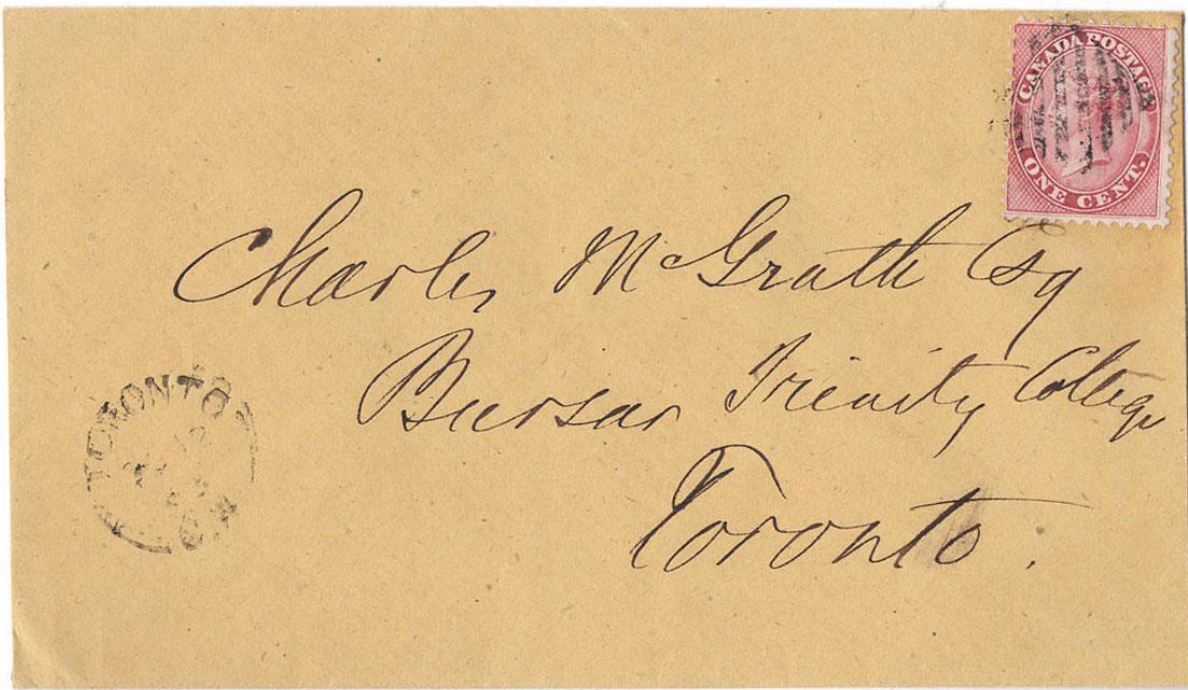 CANADA POSTAGE
ONE CENT.
Charles McGrath Esq
Bursar Trinity College
Toronto.
TORONTO